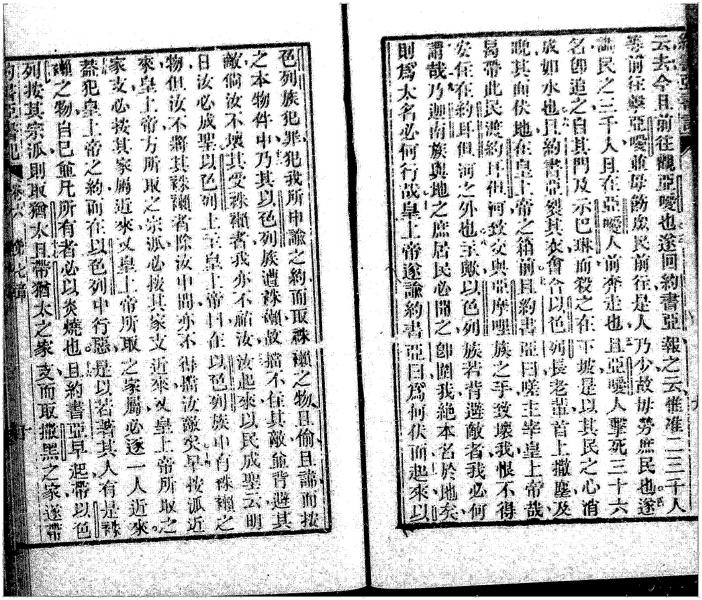 云去今日前往觀亞嗳也遂回約書亞報之云惟准二三千人
等前往擊亞嗳並毋勞庶民前往是人乃少故毋勞庶民也遂
民之三千人且在亞嗳人前奔走也且亞嗳人擊死三十六
名卽追之自其門及示巴琳而殺之在下坡是以其民之心消
成如水也且約書亞裂其衣會合以色列長老輩首上撒塵及
晚其而伏地在皇上帝之箱前且約書亞曰嗟主宰皇上帝哉
曷帶此民渡約耳但河致交與亞摩哩族之手致壞我恨不得
安在約耳但河之外也主歟以色列族若背避敵者我必何
謂哉乃迦南族與地之庶居民必聞之卽圍我絕本名於地矣
則爲太名必何行哉皇上帝遂諭約書亞曰爲何伏而起來以
色列族犯罪犯我所申諭之約而取祩𧝞之物且偷且謊而按
之本物件中乃其以色列族遭祩𧝞故擋不在其敵並背避其
敵倘汝不壞其受祩𧝞者我亦不祐汝汝起來以民成聖云明
日汝必成聖以色列上主皇上帝曰在以色列族中有祩𧝞之
物但汝不將其祩𧝞者除汝中間亦不得擋汝敵矣早按派近
來皇上帝方所取之宗派必按其家支近來又皇上帝所取之
家支必按其家屬近來又皇上帝所取之家屬必逐一人近來
蓋犯皇上帝之約而在以色列中行惡是以若著其人有是祩
𧝞之物自己並凡所有者必以炎燒也且約書亞早起帶以色
列按其宗派則取猶太且帶猶太之家支而取撒黑之家遂帶